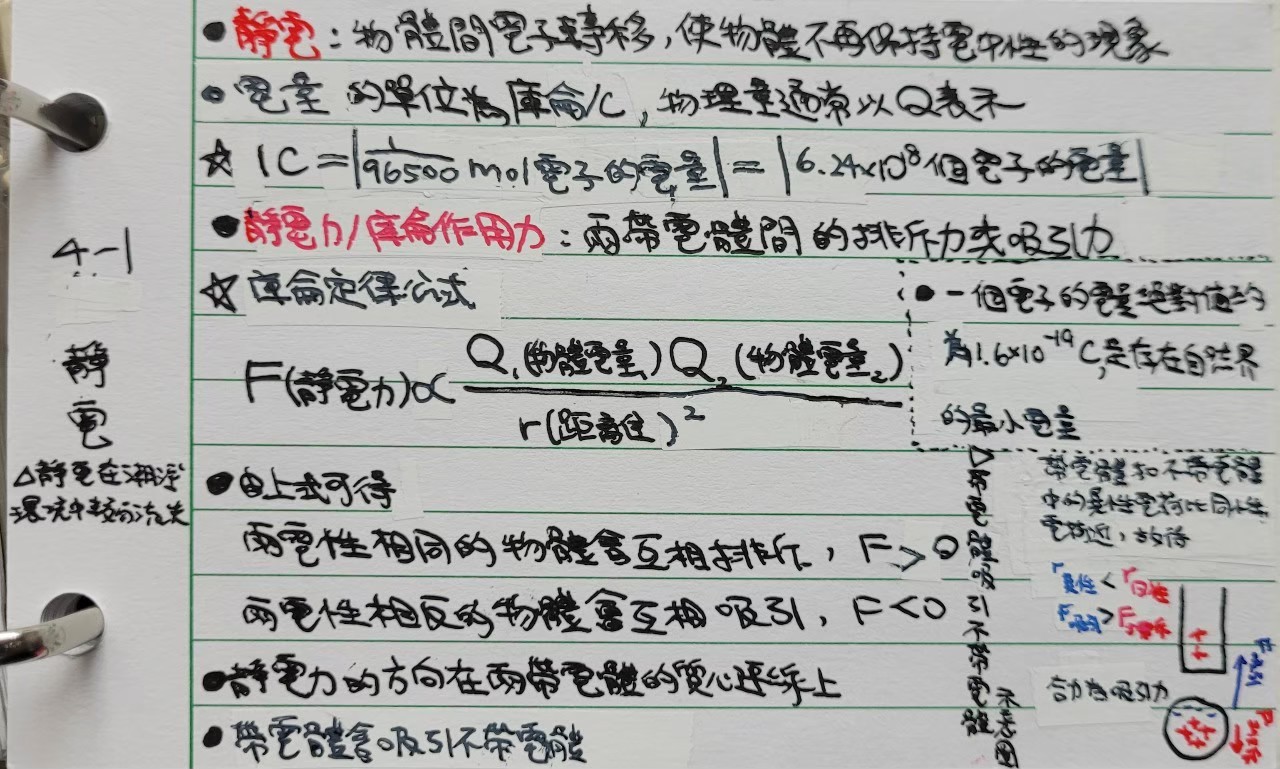 4-1
靜
電
△靜電在潮溼
環境中較易流失
●靜電：物體間電子轉移，使物體不再保持電中性的現象
●電量 的單位為庫侖/C，物理量通常以Q表示
☆ 1C=|1/96500 mol電子的電量|=|6.24×10⁸個電子的電量|
●靜電力/庫侖作用力：兩帶電體間的排斥力或吸引力
☆庫侖定律公式
F(靜電力)∝ Q₁(物體電量₁)Q₂(物體電量₂)
r(距離)²
●一個電子的電量絕對值約
為1.6×10⁻¹⁹C,是存在自然界
的最小電量
●由上式可得
兩電性相同的物體會互相排斥，F>0
兩電性相反的物體會互相吸引，F<0
●靜電力的方向在兩帶電體的質心連線上
●帶電體會吸引不帶電體
▷帶電體吸引不帶電體 示意圖
帶電體和不帶電體
中的異性電荷比同性
電荷近，故得
r異性<r同性
F吸引>F排斥
合力為吸引力
F吸引
F排斥